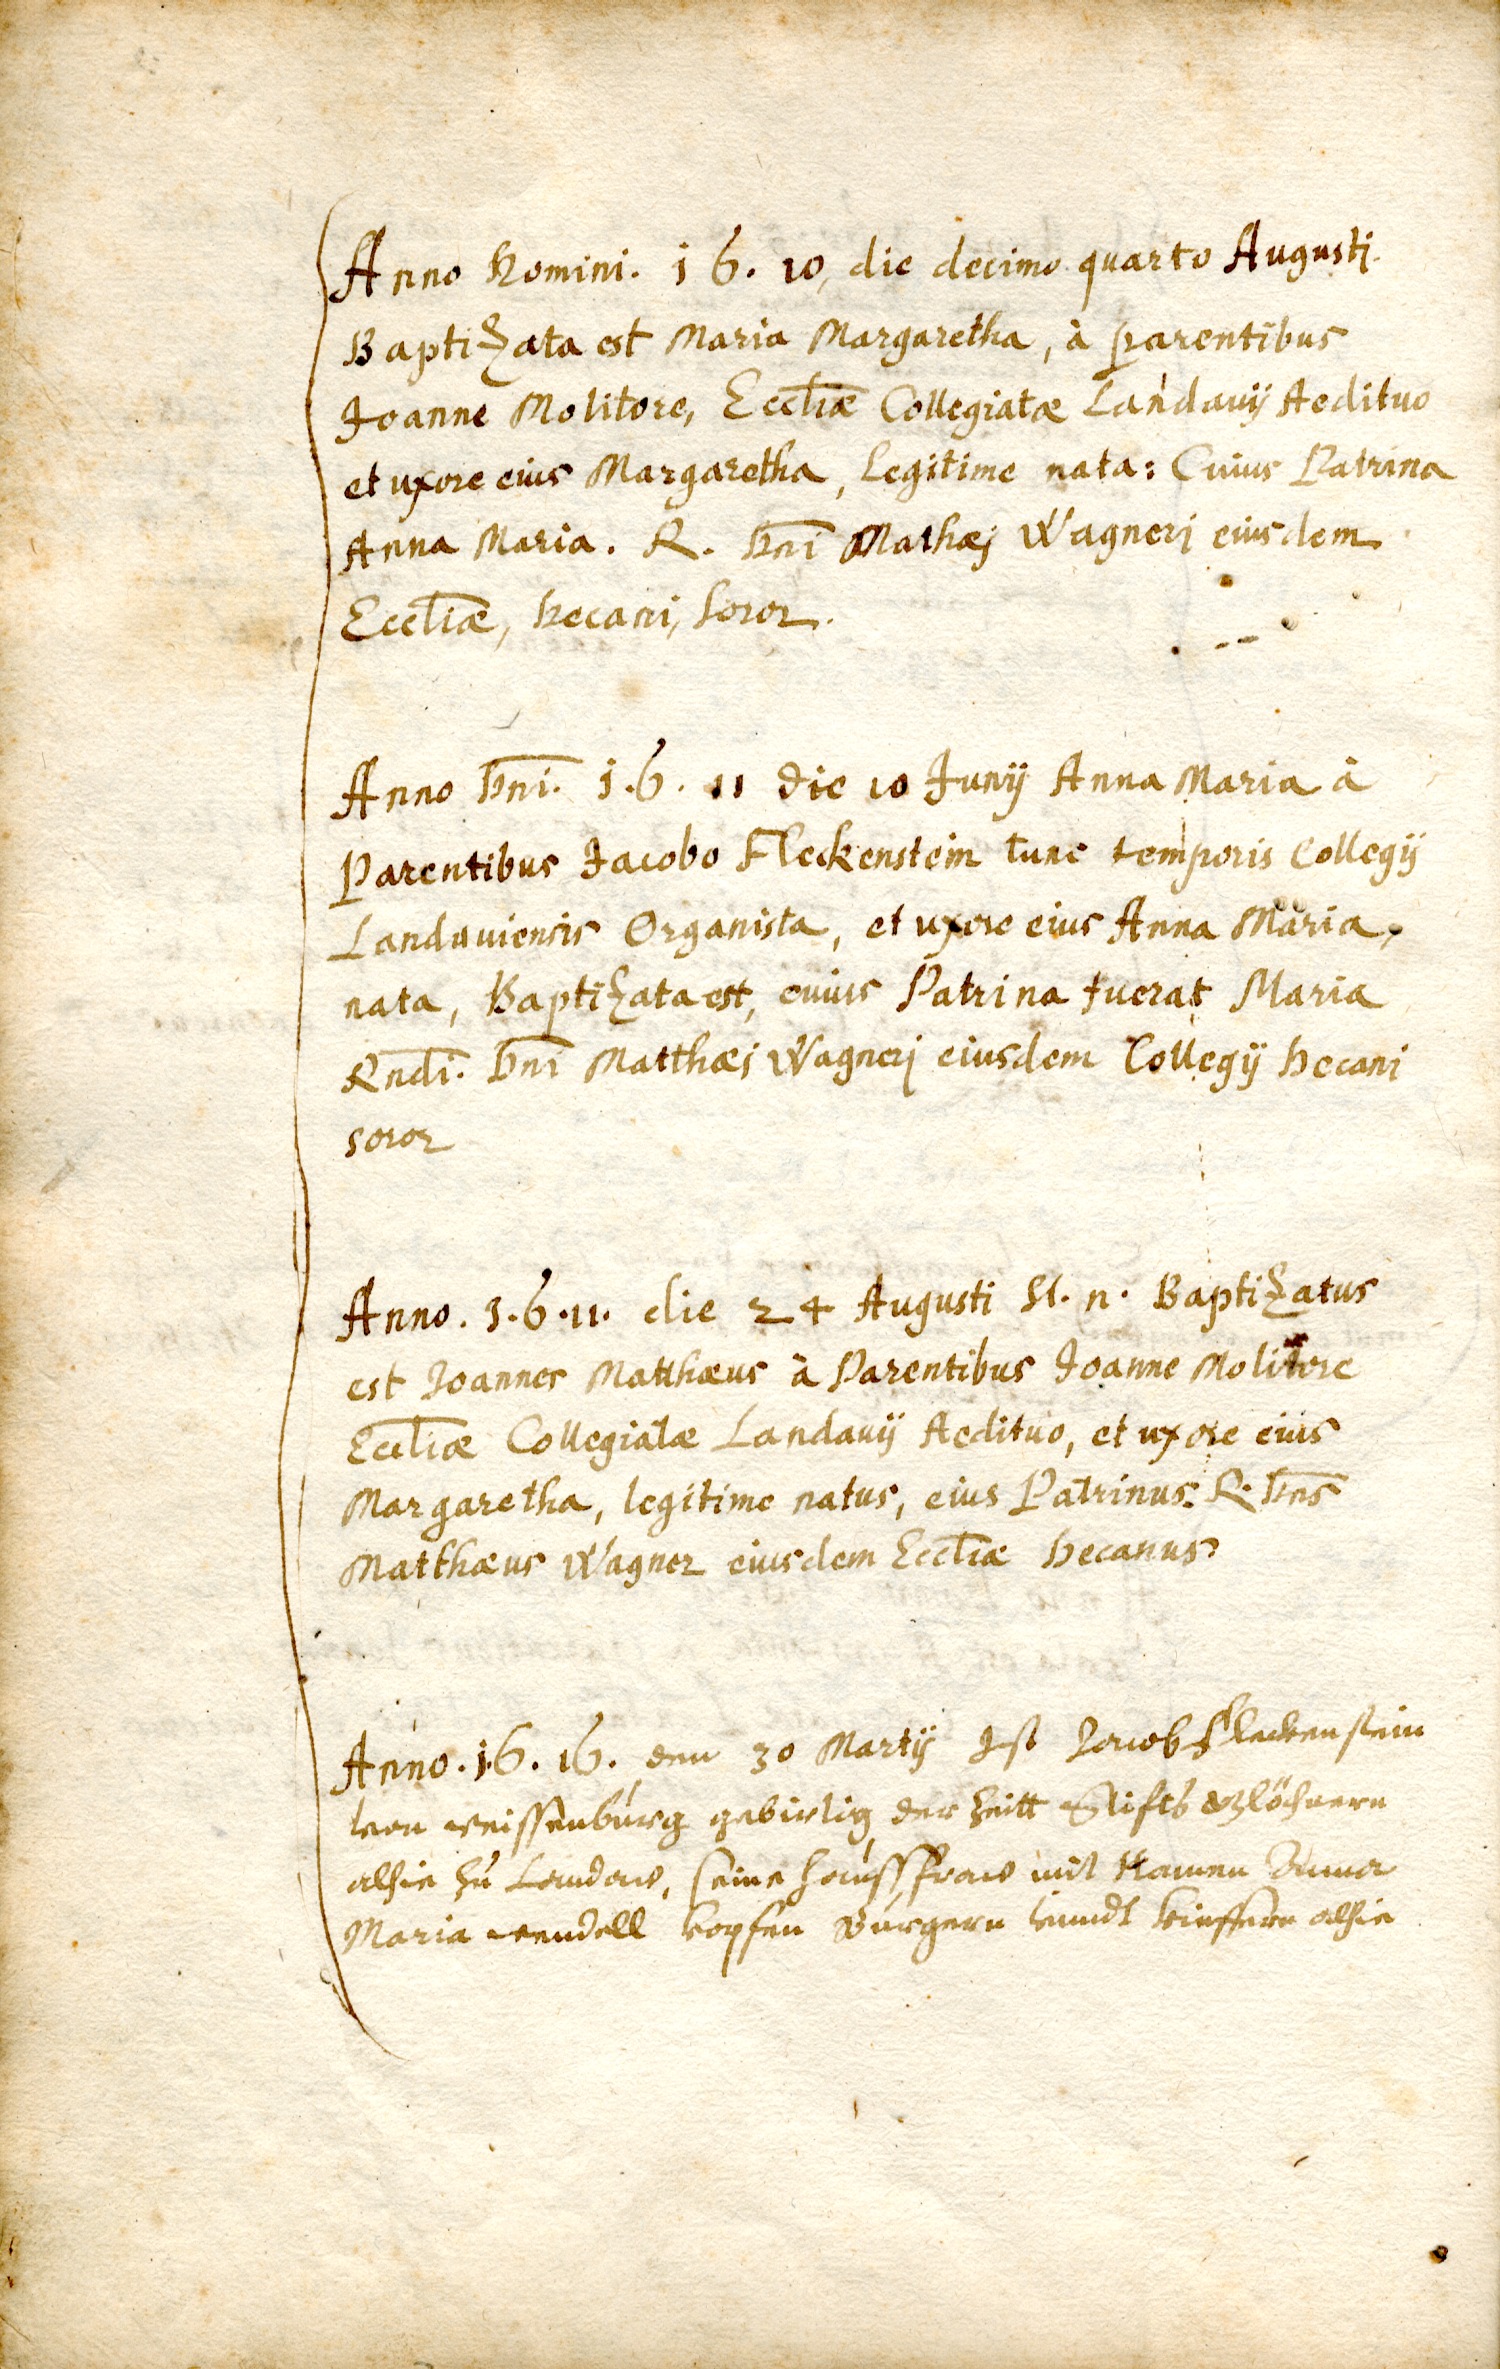 Anno Domini. 16.10, die decimo quarto Augusti.
Baptizata est Maria Margaretha, à parentibus
Joanne Molitore, Eccliæ Collegiatæ Landavij Aedituo
et uxore eius Margaretha, Legitime nata: Cuius Patrina
Anna Maria. R. Dni Mathæj Wagnerj eiusdem
Eccliæ, Decani, Soror.
Anno Dni. 1.6.11 die 10 Junij Anna Maria à
Parentibus Jacobo Fleckenstein tunc temporis Collegij
Landauiensis Organista, et uxore eius Anna Maria,
nata, Baptizata est, cuius Patrina fuerat Maria
Rndi. Dni Matthæj Wagnerj eiusdem Collegij Decani
soror
Anno. 1.6.11. die 24 Augusti St. n. Baptizatus
est Joannes Matthæus à Parentibus Joanne Molitore
Eccliæ Collegiatæ Landavij Aedituo, et uxore eius
Margaretha, legitime natus, eius Patrinus R. Dns
Matthæus Wagner eiusdem Eccliæ Decanus
Anno. 16.16. den 30 Martij Ist Jacob Fleckenstein
von weissenburg gebirtig der Zeitt Stifts
alhie zu Landaw, seine haussfraw mit Namen Anna
Maria wendell kopfen Burgern vnndt kieffern alhie